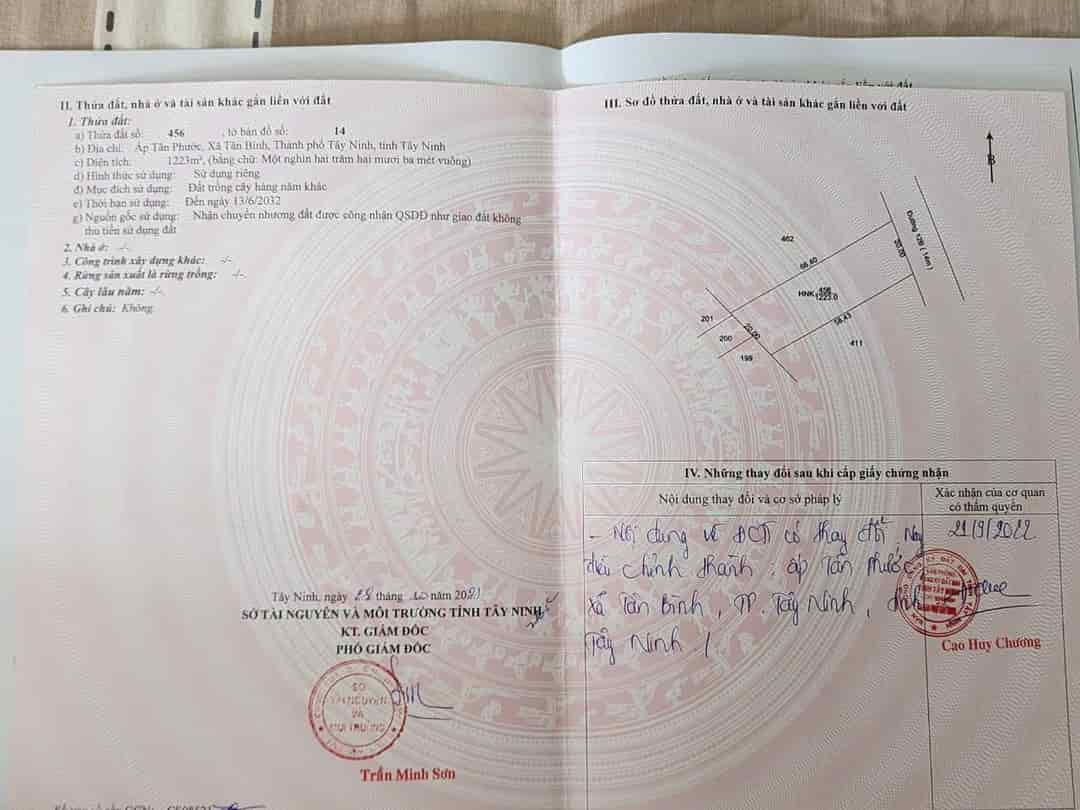 II. Thửa đất, nhà ở và tài sản khác gắn liền với đất
1. Thửa đất:
a) Thửa đất số: 456 , tờ bản đồ số: 14
b) Địa chỉ: Ấp Tân Phước, Xã Tân Bình, Thành phố Tây Ninh, tỉnh Tây Ninh
c) Diện tích: 1223m², (bằng chữ: Một nghìn hai trăm hai mươi ba mét vuông)
d) Hình thức sử dụng: Sử dụng riêng
đ) Mục đích sử dụng: Đất trồng cây hàng năm khác
e) Thời hạn sử dụng: Đến ngày 13/6/2032
g) Nguồn gốc sử dụng: Nhận chuyển nhượng đất được công nhận QSDĐ như giao đất không
thu tiền sử dụng đất
2. Nhà ở: -/-.
3. Công trình xây dựng khác: -/-
4. Rừng sản xuất là rừng trồng: -/-.
5. Cây lâu năm: -/-.
6. Ghi chú: Không.
Tây Ninh, ngày 28 tháng 10 năm 2021
SỞ TÀI NGUYÊN VÀ MÔI TRƯỜNG TỈNH TÂY NINH
KT. GIÁM ĐỐC
PHÓ GIÁM ĐỐC
SỞ
TÀI NGUYÊN
VÀ
MÔI TRƯỜNG
Trần Minh Sơn
III. Sơ đồ thửa đất, nhà ở và tài sản khác gắn liền với đất
B
Đường 12B ( 14m)
462
20.00
HNK 456
1223.0
201
20.00
200
411
199
IV. Những thay đổi sau khi cấp giấy chứng nhận
Nội dung thay đổi và cơ sở pháp lý
Xác nhận của cơ quan
có thẩm quyền
- Nội dung về ĐCTT có thay đổi. Nay
điều chỉnh thành: ấp Tân Phước,
xã Tân Bình, TP. Tây Ninh, tỉnh
Tây Ninh /.
21/9/2022
Cao Huy Chương